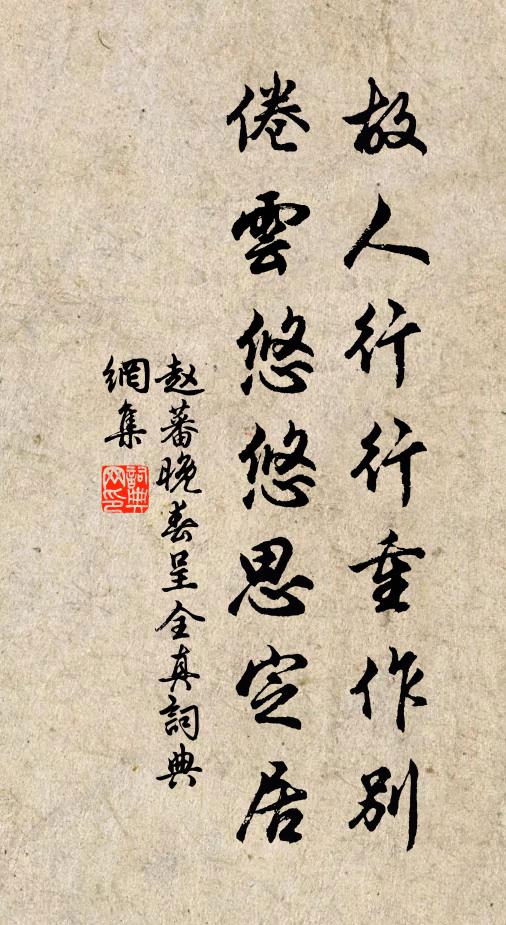 故人行行重作別
倦雲悠悠思定居
赵蕃晚春呈全真詞典
網集
詞典
网印